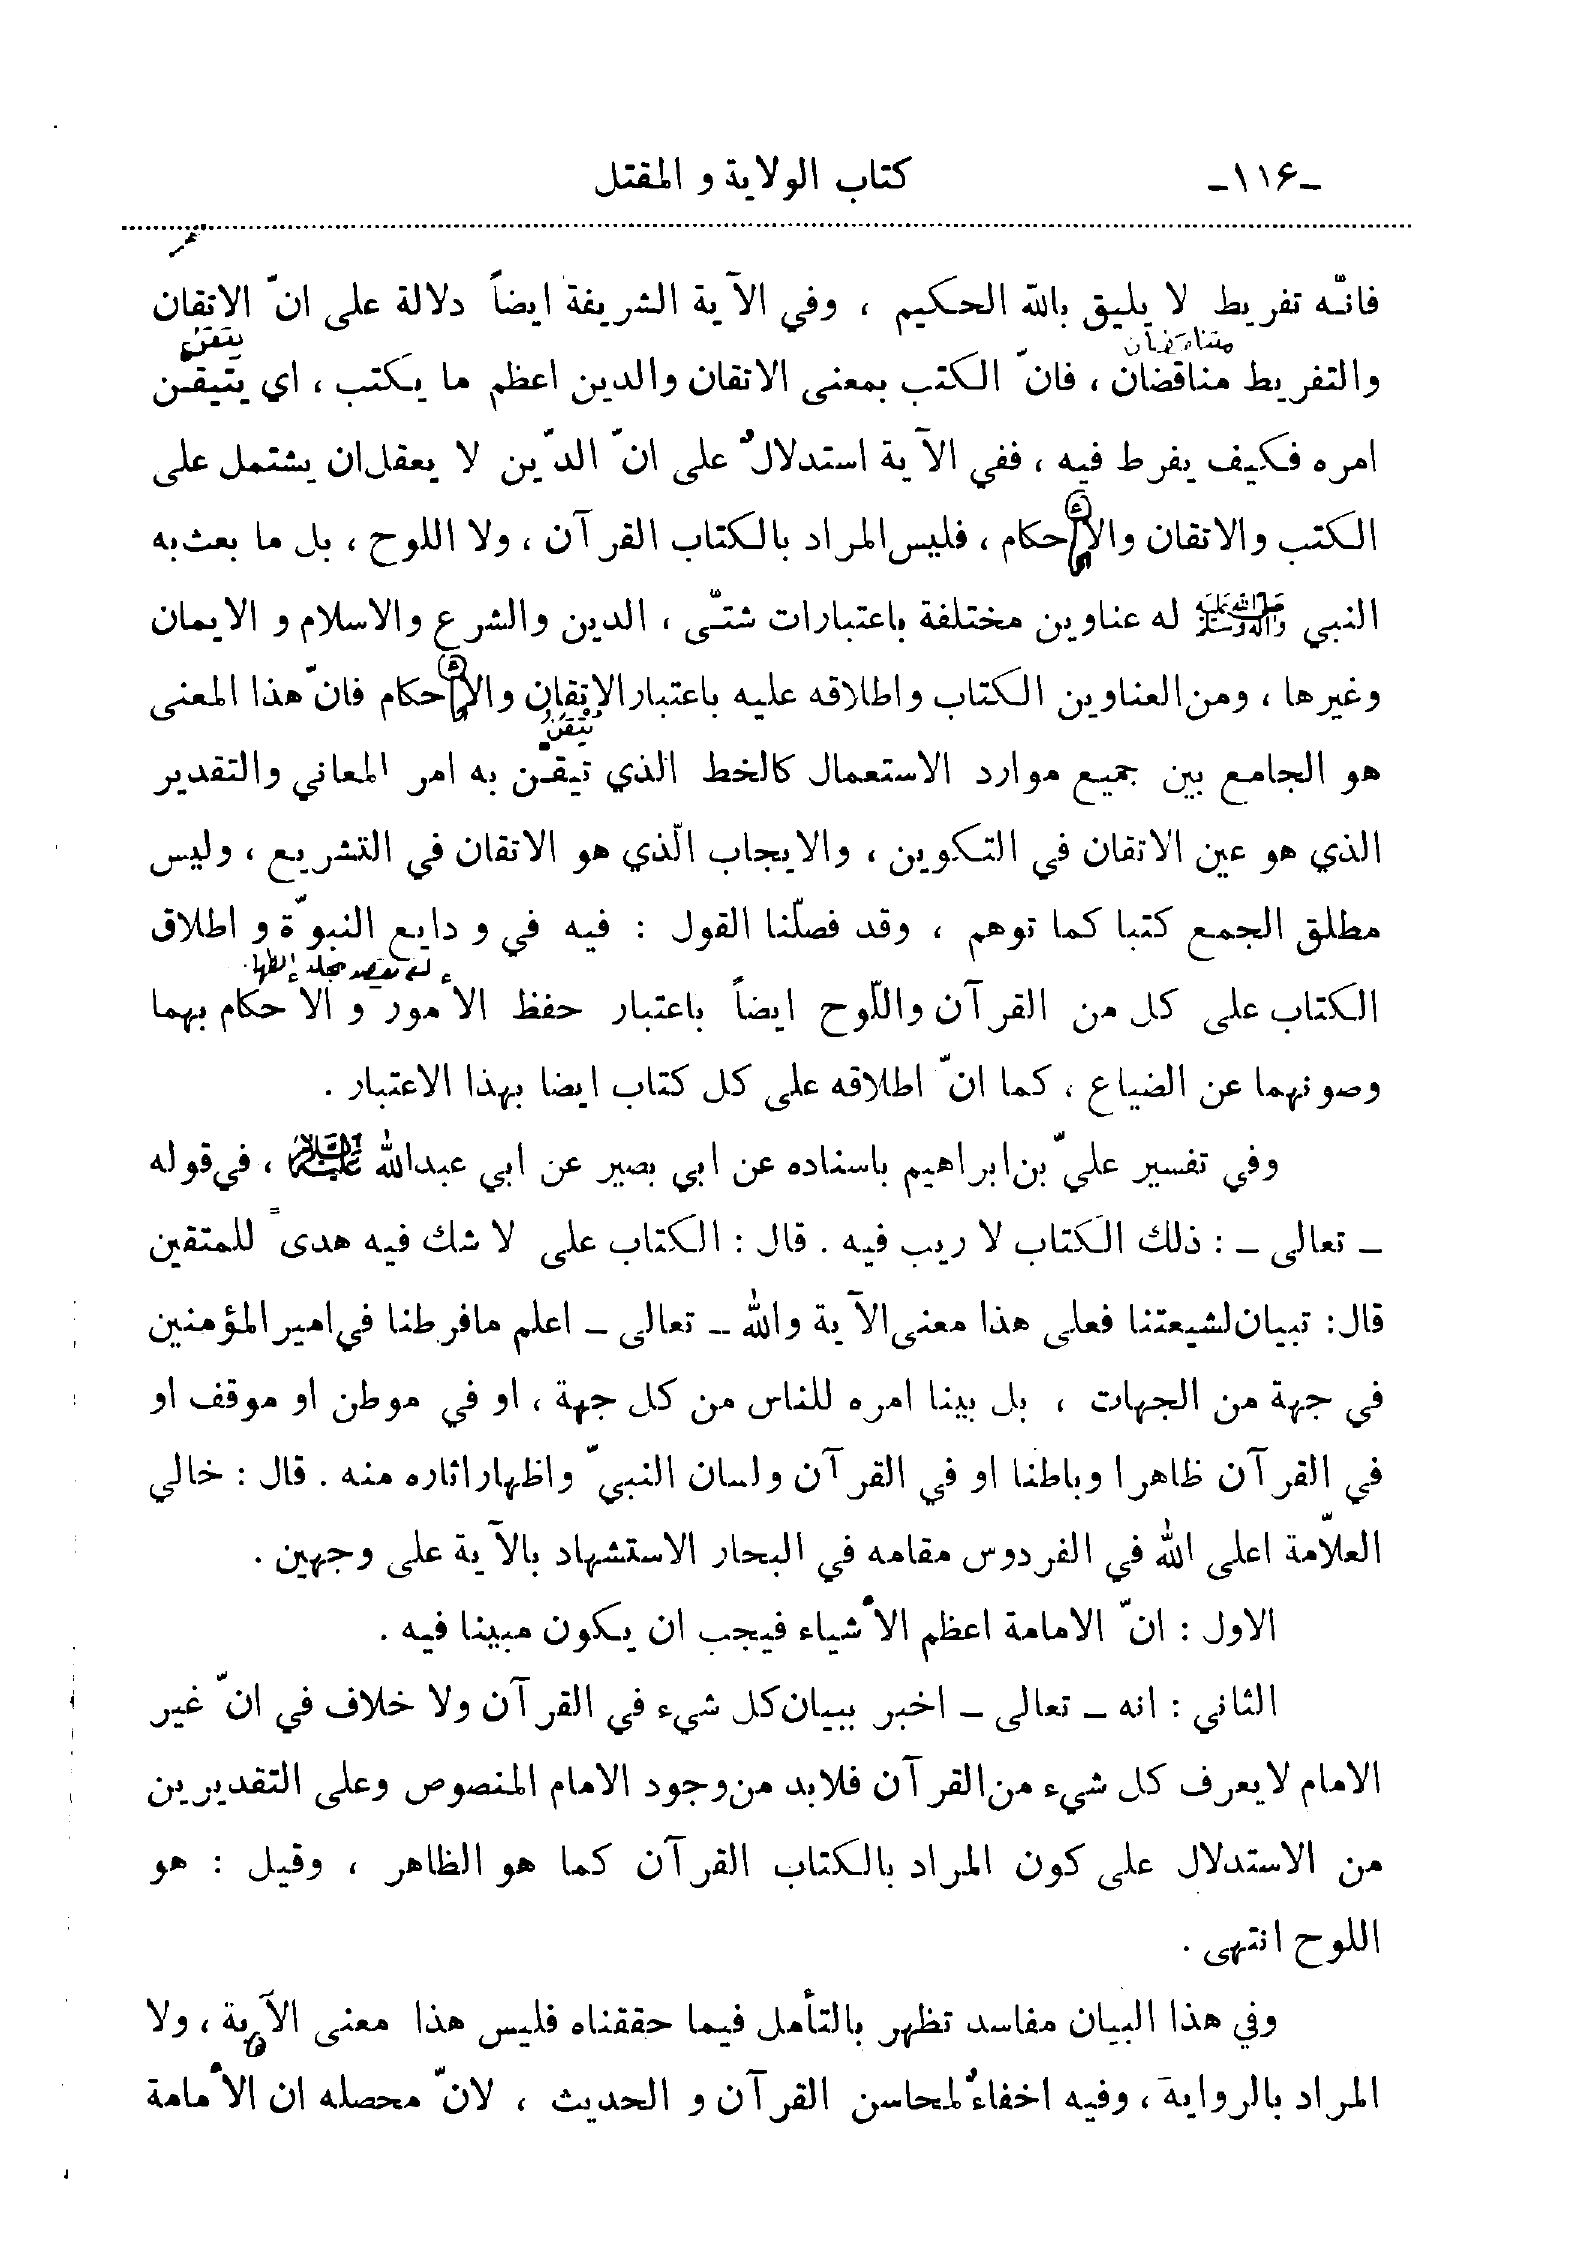 -۱۱۶- كتاب الولاية و المقتل
فانّه تفريط لا يليق بالله الحكيم ، وفي الآية الشريفة ايضاً دلالة على انّ الاتقان
متناقضان يتقن
والتفريط مناقضان ، فانّ الكتب بمعنى الاتقان والدين اعظم ما يكتب ، اي يتيقن
امره فكيف يفرط فيه ، ففي الآية استدلالٌ على انّ الدّين لا يعقل ان يشتمل على
الكتب والاتقان والاحكام ، فليس المراد بالكتاب القرآن ، ولا اللوح ، بل ما بعث به
النبي صلى الله عليه وآله وسلم له عناوين مختلفة باعتبارات شتّى ، الدين والشرع والاسلام و الايمان
وغيرها ، ومن العناوين الكتاب واطلاقه عليه باعتبار الاتقان والاحكام فانّ هذا المعنى
يتقن
هو الجامع بين جميع موارد الاستعمال كالخط الذي تيقن به امر المعاني والتقدير
الذي هو عين الاتقان في التكوين ، والايجاب الّذي هو الاتقان في التشريع ، وليس
مطلق الجمع كتبا كما توهم ، وقد فصلّنا القول : فيه في و دايع النبوّة و اطلاق
الكتاب على كل من القرآن واللّوح ايضاً باعتبار حفظ الأمور و الاحكام بهما
وصونهما عن الضياع ، كما انّ اطلاقه على كل كتاب ايضا بهذا الاعتبار .
وفي تفسير عليّ بن ابراهيم باسناده عن ابي بصير عن ابي عبدالله عليه السلام ، في قوله
ـ تعالى ـ : ذلك الكتاب لا ريب فيه . قال : الكتاب على لا شك فيه هدىً للمتقين
قال : تبيان لشيعتنا فعلى هذا معنى الآية والله ـ تعالى ـ اعلم مافرطنا في امير المؤمنين
في جهة من الجهات ، بل بينا امره للناس من كل جهة ، او في موطن او موقف او
في القرآن ظاهرا وباطنا او في القرآن ولسان النبيّ واظهار اثاره منه . قال : خالي
العلاّمة اعلى الله في الفردوس مقامه في البحار الاستشهاد بالآية على وجهين .
الاول : انّ الامامة اعظم الأشياء فيجب ان يكون مبينا فيه .
الثاني : انه ـ تعالى ـ اخبر ببيان كل شيء في القرآن ولا خلاف في انّ غير
الامام لا يعرف كل شيء من القرآن فلابد من وجود الامام المنصوص وعلى التقديرين
من الاستدلال على كون المراد بالكتاب القرآن كما هو الظاهر ، وقيل : هو
اللوح انتهى .
وفي هذا البيان مفاسد تظهر بالتأمل فيما حققناه فليس هذا معنى الآية ، ولا
المراد بالرواية ، وفيه اخفاءٌ لمحاسن القرآن و الحديث ، لانّ محصله ان الأمامة